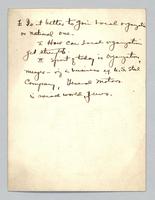 Is it better to join local organization
or national one.
How can local organization
get strength
Spirit of today is organization
merge - of a business e.g. U.S. Steel
Company, General Motors
is sacred world of